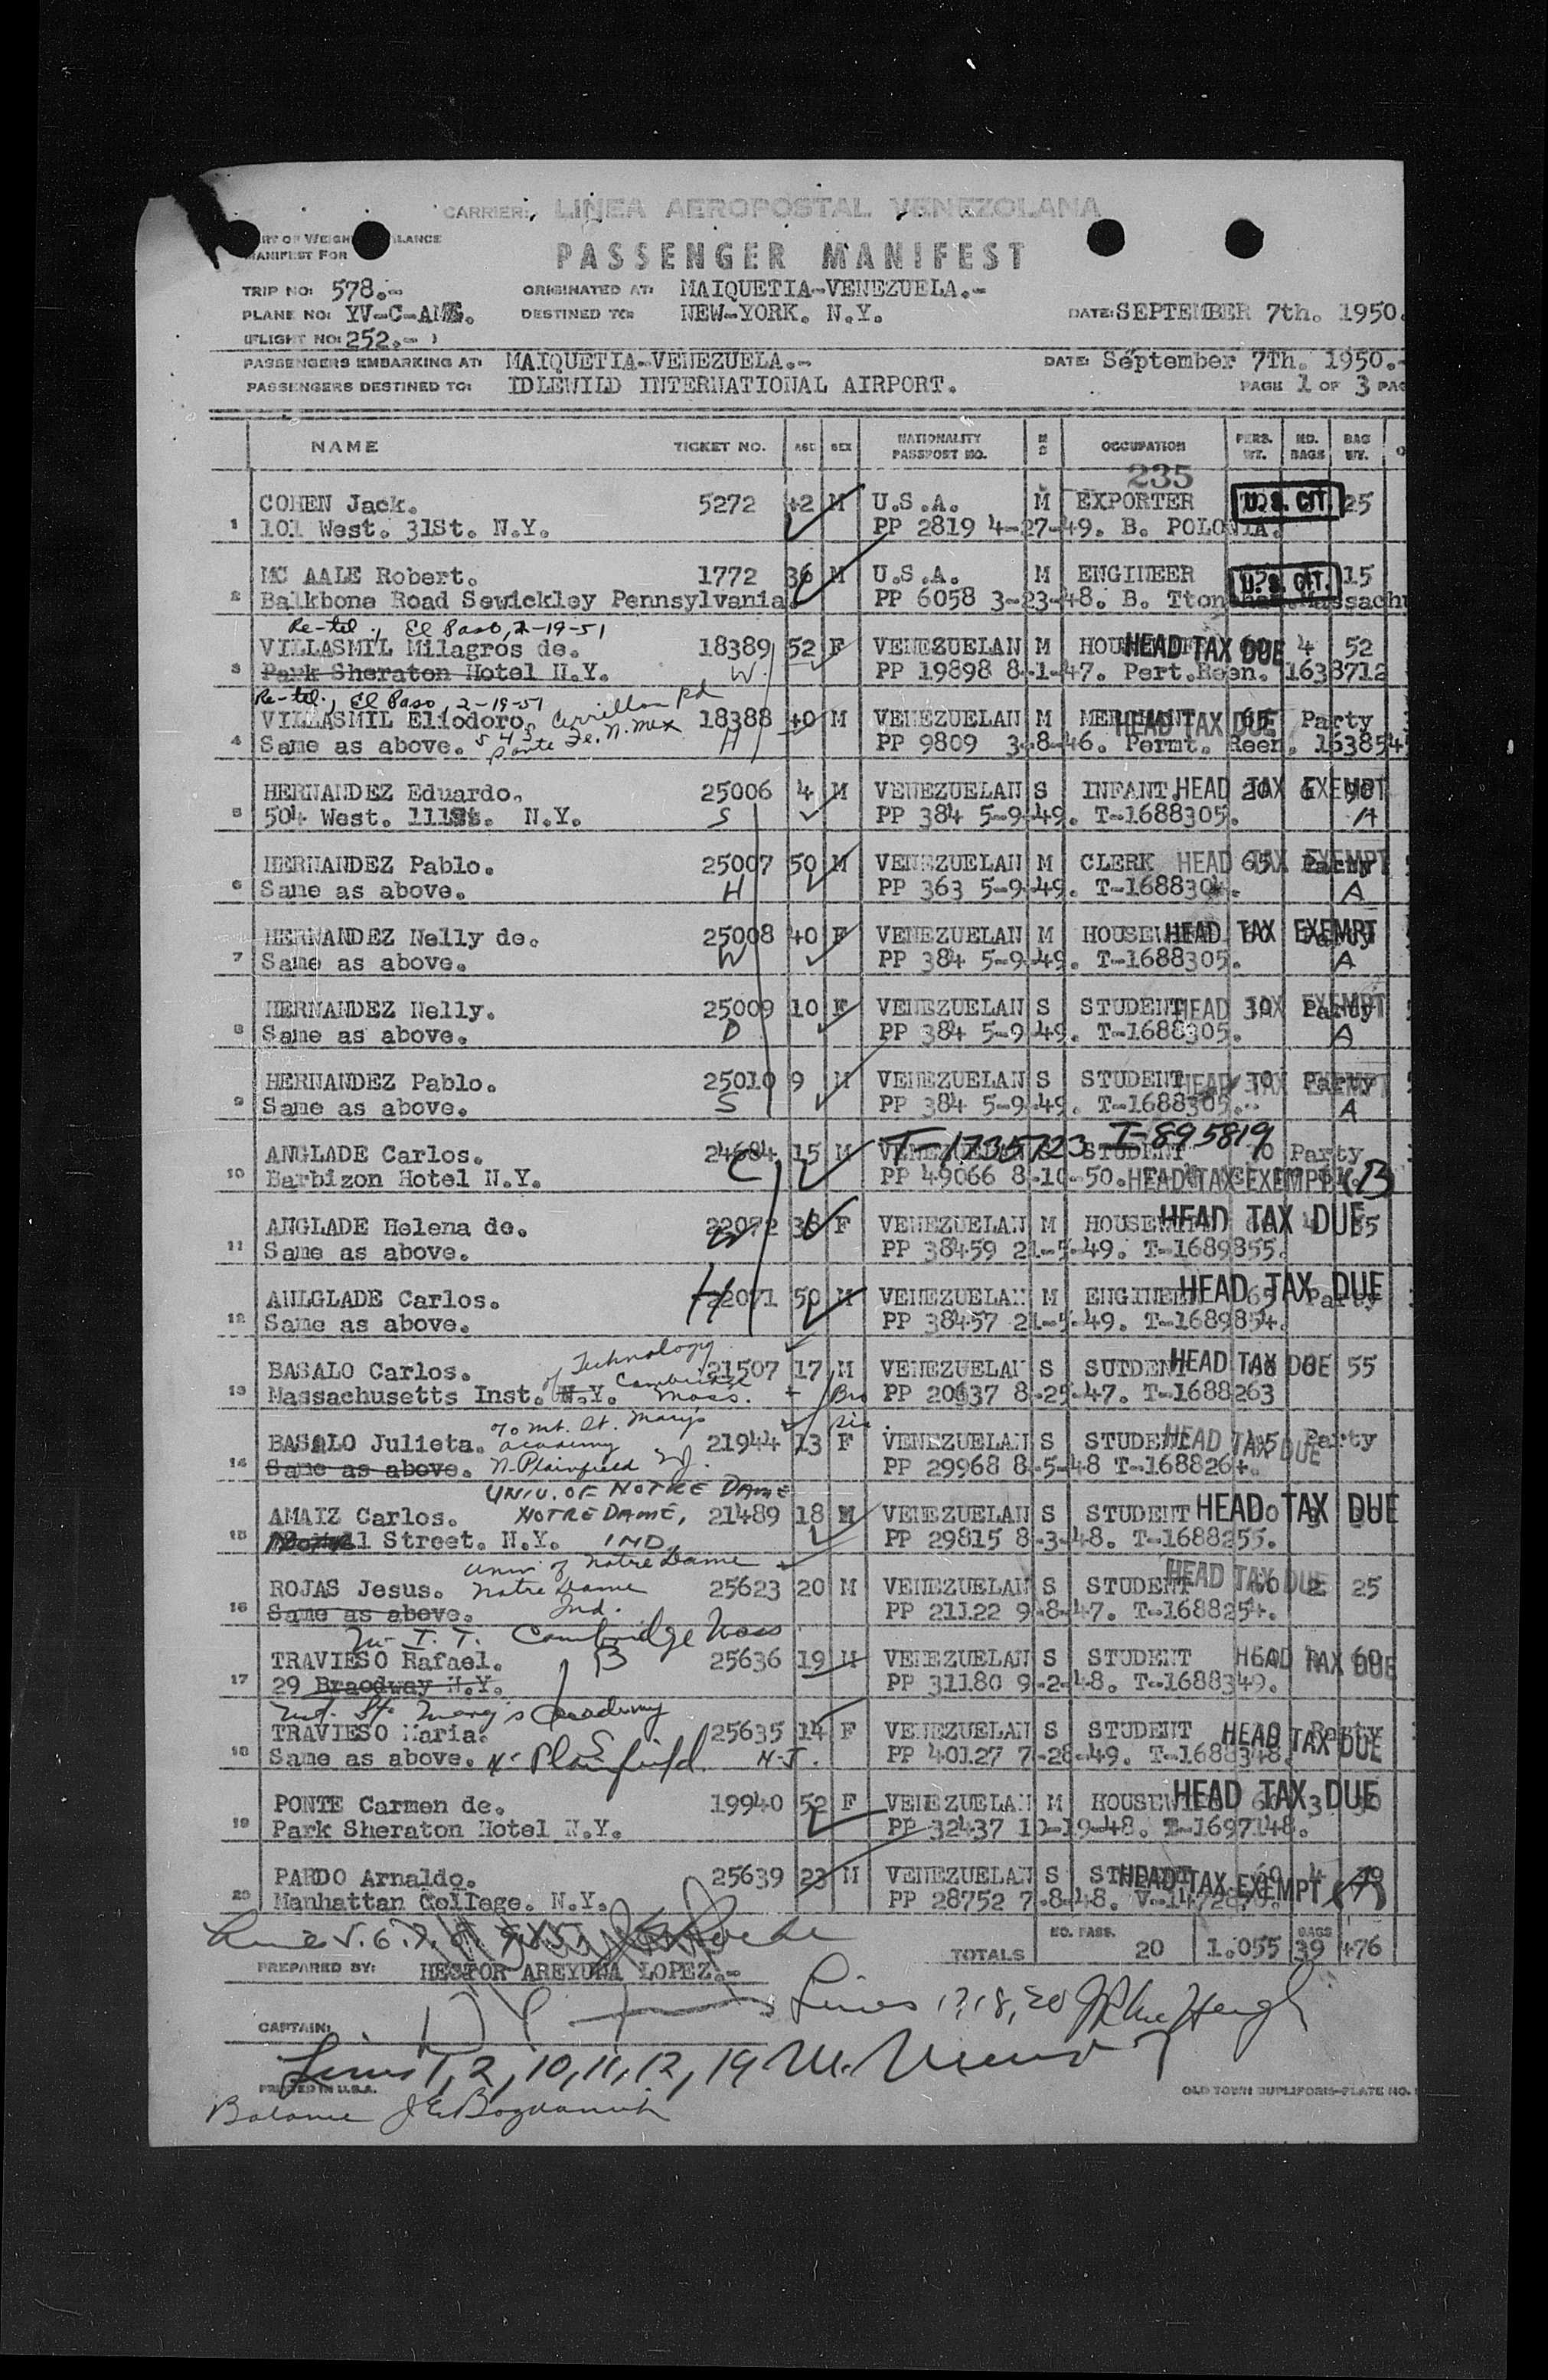 CARRIER: LINEA AEROPOSTAL VENEZOLANA
PASSENGER MANIFEST
MANIFEST FOR
TRIP NO: 578.- ORIGINATED AT: MAIQUETIA-VENEZUELA.-
PLANE NO: YV-C-AM DESTINED TO: NEW-YORK. N.Y. DATE: SEPTEMBER 7th. 1950.
(FLIGHT NO: 252.- )
PASSENGERS EMBARKING AT: MAIQUETIA-VENEZUELA.- DATE: September 7Th. 1950.-
PASSENGERS DESTINED TO: IDLEWILD INTERNATIONAL AIRPORT. PAGE 1 OF 3 PAG
NAME TICKET NO. AGE SEX NATIONALITY PASSPORT NO. M S OCCUPATION PERS. WT. NO. BAGS BAG WT.
235
COHEN Jack. 5272 42 M U.S.A. M EXPORTER U.S. CIT. 25
1 101 West. 31St. N.Y. PP 2819 4-27-49. B. POLONIA.
MC AALE Robert. 1772 36 M U.S.A. M ENGINEER U.S. CIT. 15
2 Balkbone Road Sewickley Pennsylvania. PP 6058 3-23-48. B.
Re-tel., El Paso, 2-19-51
VILLASMIL Milagros de. 18389 52 F VENEZUELAN M HOUSEWIFE HEAD TAX DUE 4 52
3 Park Sheraton Hotel N.Y. W PP 19898 8-1-47. Pert.Reen. 1638712
Re-tel., El Paso, 2-19-51 Cerrillos Rd
VILLASMIL Eliodoro. 18388 40 M VENEZUELAN M MERCHANT HEAD TAX DUE Party
4 Same as above. 543 Sante Fe. N. Mex H PP 9809 3-8-46. Permt. Reen. 163854
HERNANDEZ Eduardo. 25006 4 M VENEZUELAN S INFANT HEAD TAX EXEMPT
5 504 West. 111St. N.Y. S PP 384 5-9-49. T-1688305. A
HERNANDEZ Pablo. 25007 50 M VENEZUELAN M CLERK HEAD TAX EXEMPT 65 Party
6 Same as above. H PP 363 5-9-49. T-1688304. A
HERNANDEZ Nelly de. 25008 40 F VENEZUELAN M HOUSEWIFE HEAD TAX EXEMPT
7 Same as above. W PP 384 5-9-49. T-1688305. A
HERNANDEZ Nelly. 25009 10 F VENEZUELAN S STUDENT HEAD TAX EXEMPT 30 Party
8 Same as above. D PP 384 5-9-49. T-1688305. A
HERNANDEZ Pablo. 25010 9 M VENEZUELAN S STUDENT HEAD TAX EXEMPT 30 Party
9 Same as above. S PP 384 5-9-49. T-1688305. A
T-1735723 I-895819
ANGLADE Carlos. 24684 15 M VENEZUELAN S STUDENT Party
10 Barbizon Hotel N.Y. C PP 49066 8-10-50. HEAD TAX EXEMPT (B)
ANGLADE Helena de. 22072 38 F VENEZUELAN M HOUSEWIFE HEAD TAX DUE
11 Same as above. W PP 38459 21-5-49. T-1689855.
ANLGLADE Carlos. 22071 50 M VENEZUELAN M ENGINEER HEAD TAX DUE 65 Party
12 Same as above. H PP 38457 21-5-49. T-1689854.
BASALO Carlos. 21507 17 M VENEZUELAN S SUTDENT HEAD TAX DUE 55
13 Massachusetts Inst. N.Y. of Technology Cambridge Mass. Bro PP 20637 8-25-47. T-1688263
% Mt. St. Mary's Sis
BASALO Julieta. Academy 21944 13 F VENEZUELAN S STUDENT HEAD TAX DUE Party
14 Same as above. N. Plainfield NJ. PP 29968 8-5-48 T-1688264.
UNIV. OF NOTRE DAME
AMAIZ Carlos. NOTRE DAME, 21489 18 M VENEZUELAN S STUDENT HEAD TAX DUE
15 Street. N.Y. IND. PP 29815 8-3-48. T-1688255.
Univ of Notre Dame
ROJAS Jesus. Notre Dame 25623 20 M VENEZUELAN S STUDENT HEAD TAX DUE 2 25
16 Same as above. Ind. PP 21122 9-8-47. T-1688254.
M.I.T. Cambridge Mass
TRAVIESO Rafael. B 25636 19 M VENEZUELAN S STUDENT HEAD TAX DUE
17 29 Braodway N.Y. PP 31180 9-2-48. T-1688349.
Mt. St. Mary's Academy
TRAVIESO Maria. S 25635 14 F VENEZUELAN S STUDENT HEAD TAX DUE Party
18 Same as above. N. Plainfield. N.J. PP 40127 7-28-49. T-1688348.
PONTE Carmen de. 19940 52 F VENEZUELAN M HOUSEWIFE HEAD TAX DUE
19 Park Sheraton Hotel N.Y. PP 32437 10-19-48. T-1697148.
PARDO Arnaldo. 25639 23 M VENEZUELAN S STUDENT 4
20 Manhattan College. N.Y. PP 28752 7-8-48. HEAD TAX EXEMPT (A)
TOTALS NO. PASS. 20 1.055 BAGS 39 476
PREPARED BY: HECTOR AREYUNA LOPEZ.-
Lines 17, 18, 20
CAPTAIN:
Lines 1, 2, 10, 11, 12, 19
PRINTED IN U.S.A. OLD TOWN DUPLIFORM-PLATE NO.
Balance